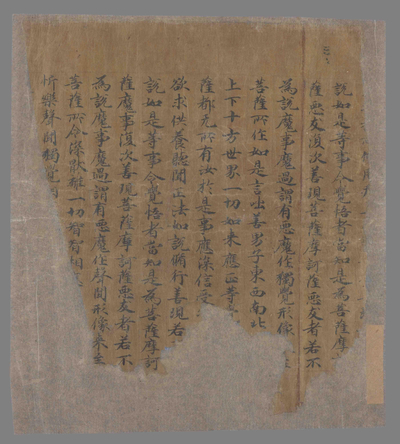 說如是等事令覺悟者當如是為菩薩摩
薩惡友復次善現菩薩摩訶薩惡友者若不
為說魔事魔過謂有惡魔作獨覺形像
菩薩所作如是言咄善男子東西南北
上下十方世界一切如来應正等
薩都无所有汝於是事應深信受
欲求供養聽聞正法如說脩行善現若
說如是等事令覺悟者當如是為菩薩摩訶
薩魔事復次善現菩薩摩訶薩惡友者若不
為說魔事魔過謂有惡魔作聲聞形像来至
菩薩所令深猒離一切智智相
忻樂聲聞獨覺相